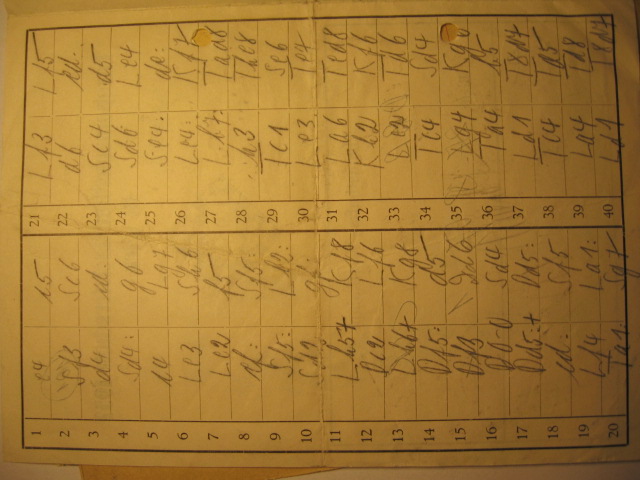 1 e4 c5
2 Sf3 Sc6
3 d4 cd:
4 Sd4: g6
5 c4 Lg7
6 Le3 Sh6
7 Le2 f5
8 ef: Sf5:
9 Sf5: Lb2:
10 Sd2 gf:
11 Lh5+ Kf8
12 Dc2 Lf6
13 Kg8
14 Df5: d5
15 Df3
16 0-0 Sd4
17 Dd5:+ Dd5:
18 cd: Sf5
19 Lf4 La1:
20 Ta1: Sd7
21 Lf3
22 d6 ed:
23 Se4 d5
24 Sd6 Le4
25 Se4: de:
26 Le4: Kf7
27 Lb7: Tad8
28 h3 The8
29 Tc1 Se6
30 Le3 Te7
31 La6 Ted8
32 Kh2 Kf6
33 Td6
34 Tc4 Sd4
35 g4 Kg6
36 Ta4 h5
37 Ld1 T8d7
38 Tc4 Td5
39 La4 Td8
40 Ld1 T8d7